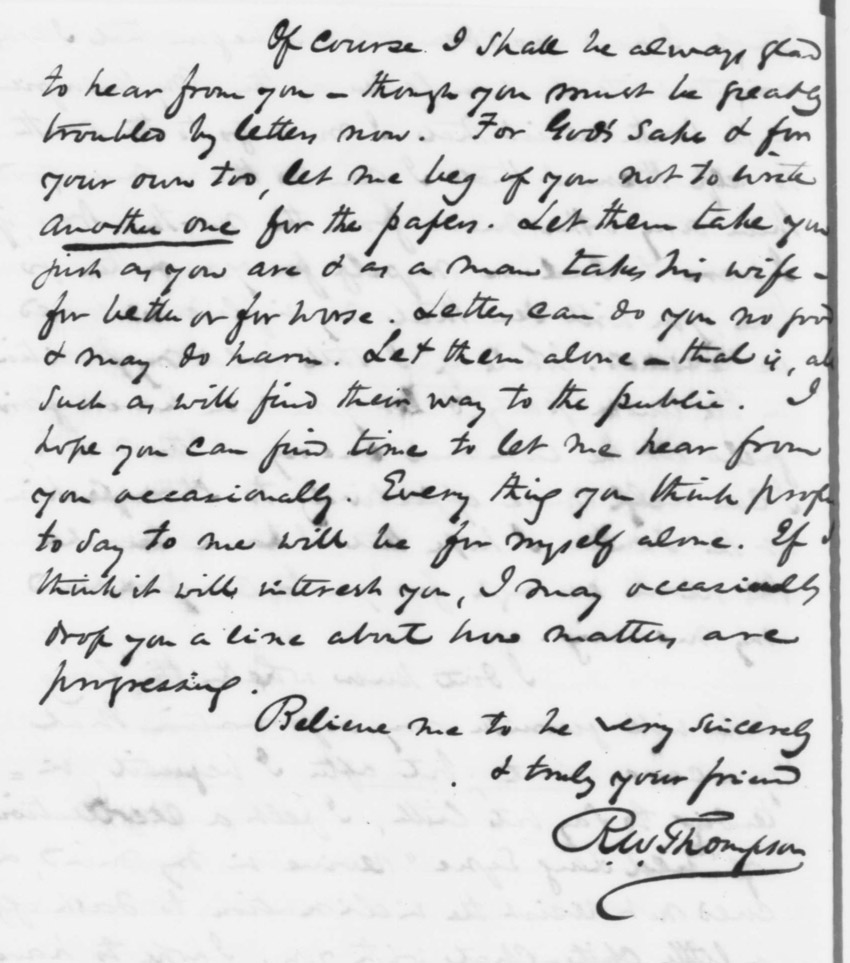 Of course I shall be always glad
to hear from you - though you must be greatly
troubled by letters now. For God's sake & for
your own too, let me beg of you not to write
another one for the papers. Let them take you
just as you are & as a man takes his wife -
for better or for worse. Letters can do you no good
& may do harm. Let them alone - that is, all
such as will find their way to the public. I
hope you can find time to let me hear from
you occasionally. Every thing you think proper
to say to me will be for myself alone. If I
think it will interest you, I may occasionally
drop you a line about how matters are
progressing.
Believe me to be very sincerely
& truly your friend
R. W. Thompson